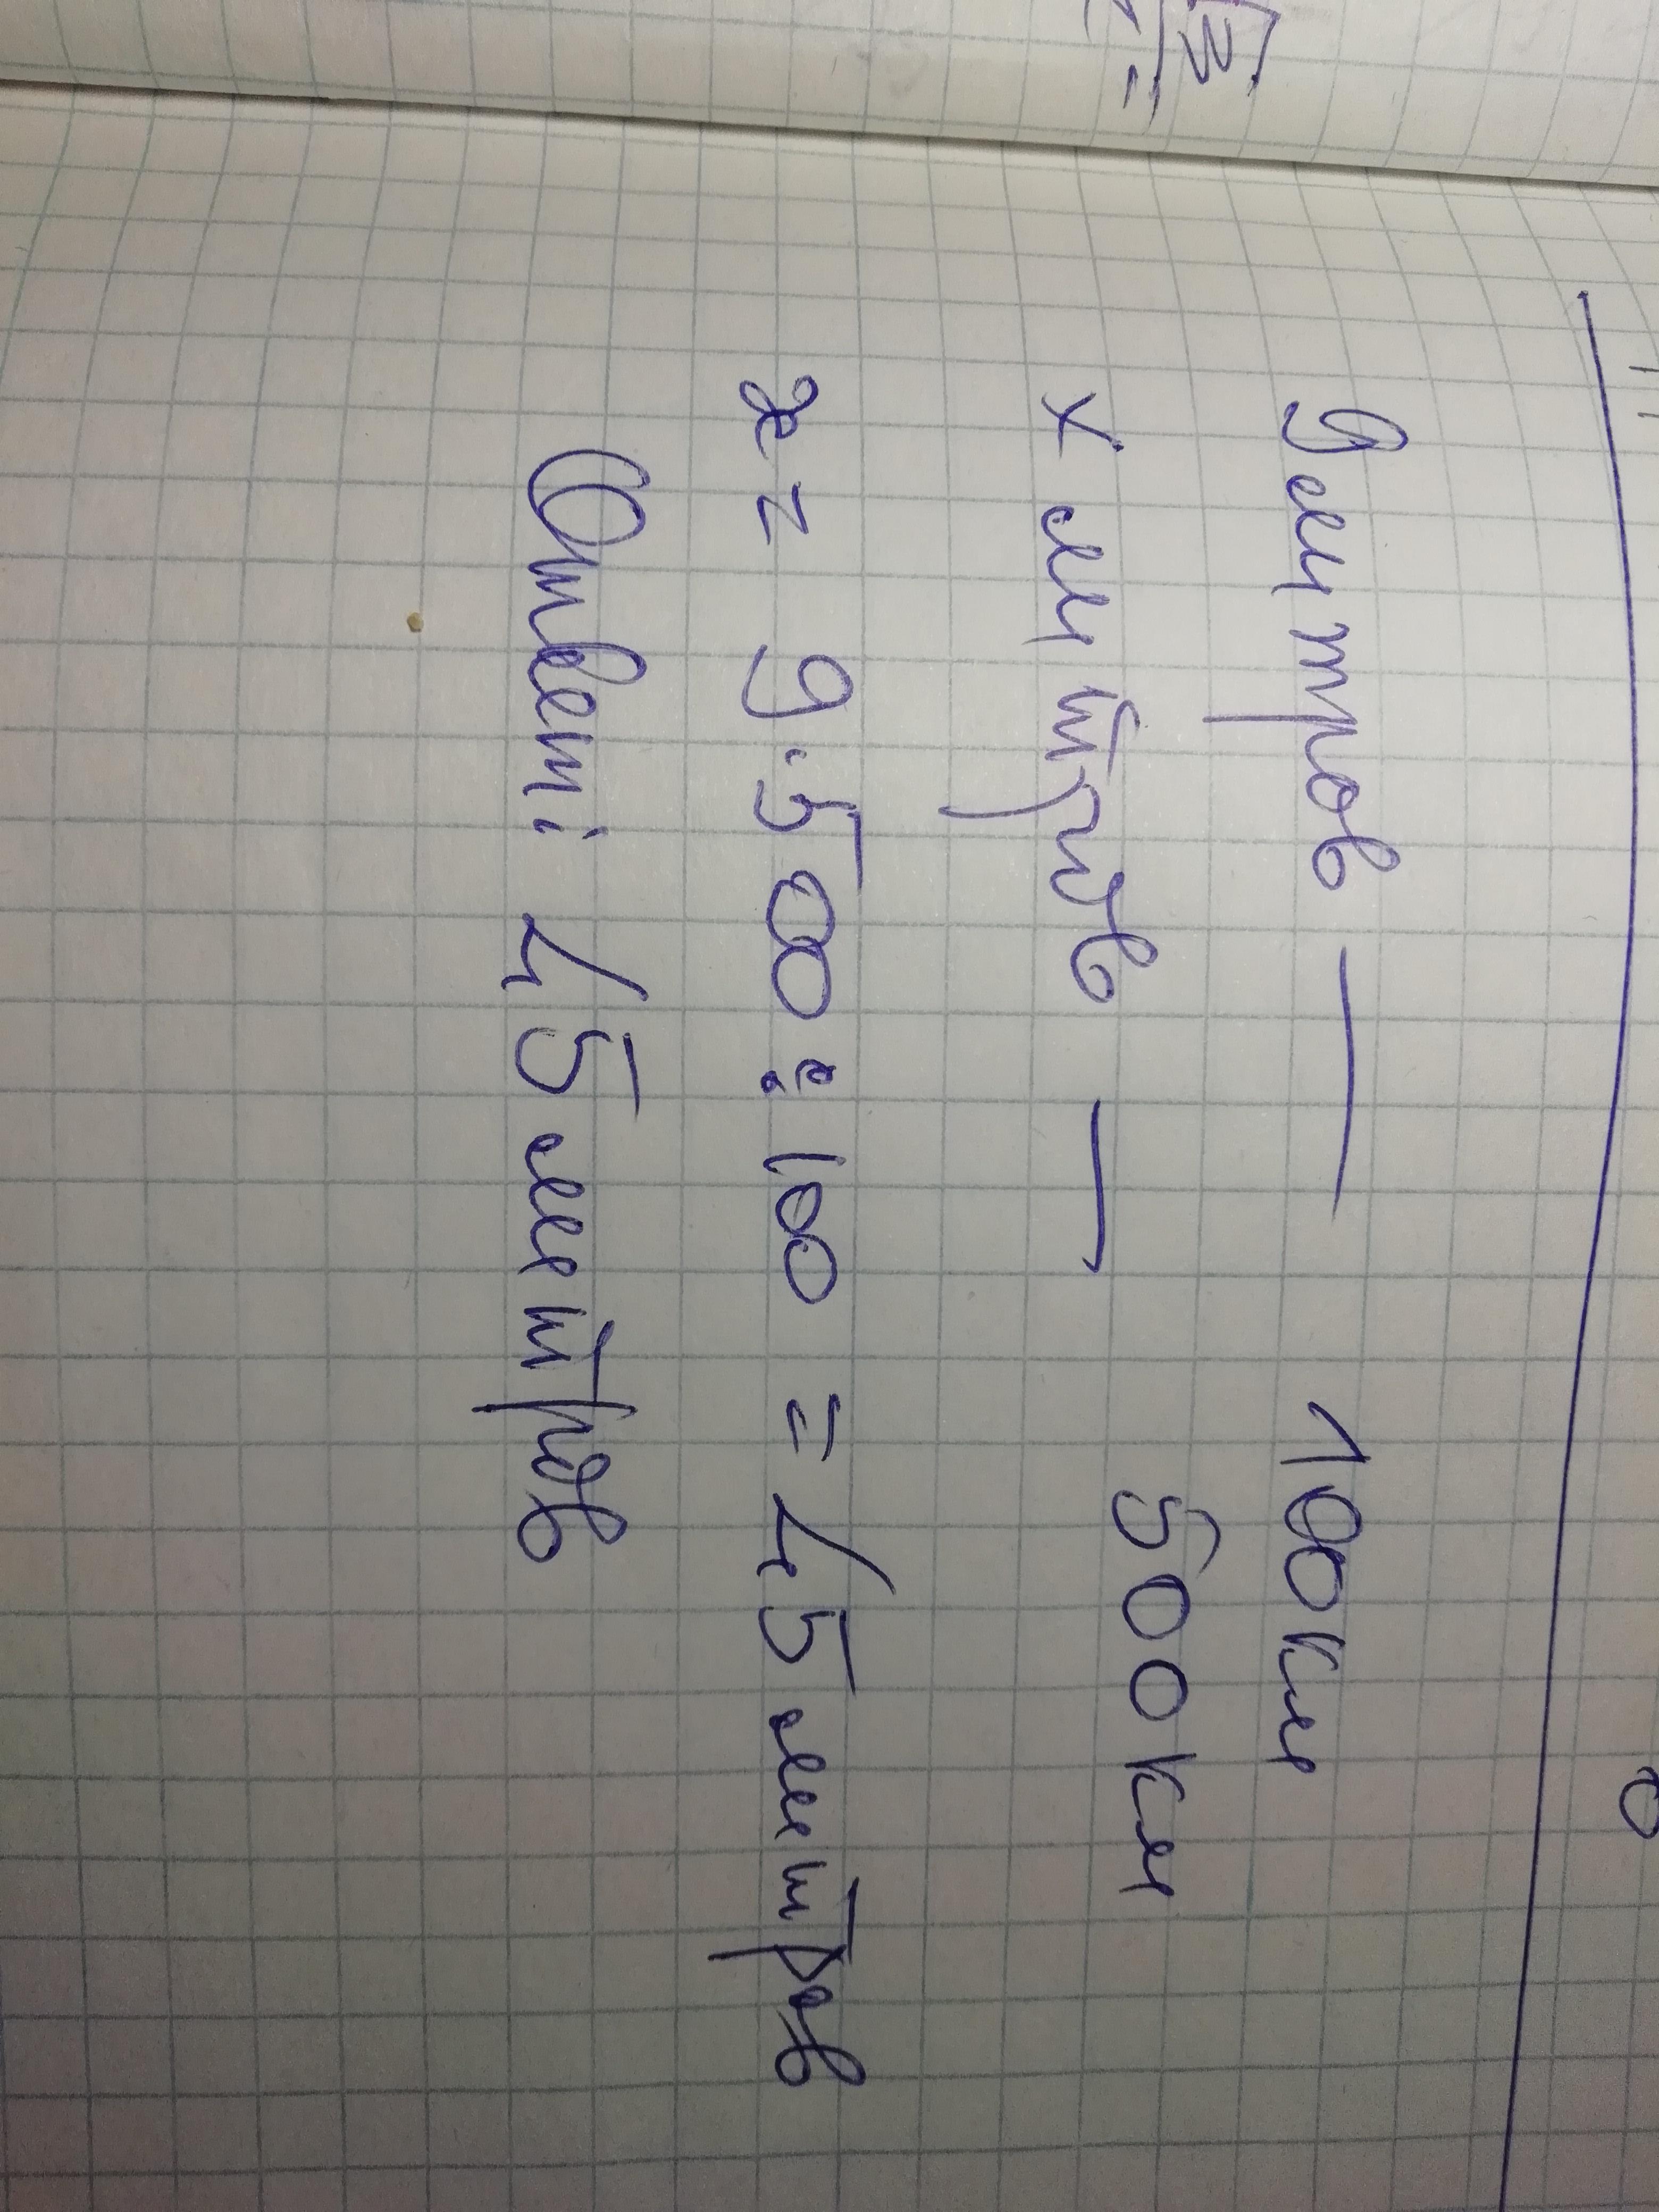 9 литров — 100 км
х литров — 500 км
х = 9·500:100 = 45 литров
Ответ: 45 литров